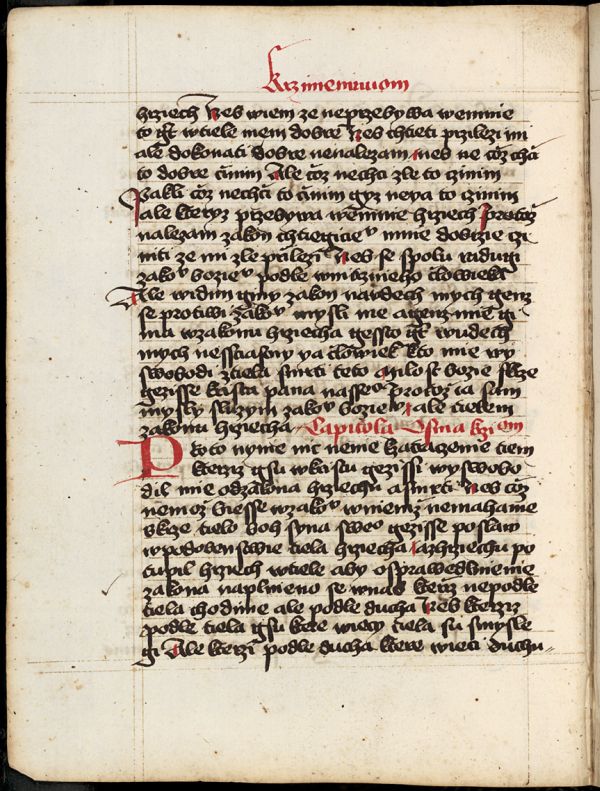 Krzimeninom
hrziech Nes wiem ze neprzebywa wemnie
to gt wtiele mem dobre Nes chtieti przilezi mi
ale dokonati dobre nenalezam Nes ne czoz chci
to dobre czinim Ale czoz nechci zle to czinim
Pakli czoz nechci to czinim gyz neya to czinim
ale kteryz przebywa wemnie hrziech Protoz
nalezam zakon chtiegicie mnie dobrzie czi
niti ze mi zle przilezi Nes se spolu radugi
zako bozie podle wnitrznieho czlowieka
Ale widim giny zakon naudech mych genz
se protiwi zako mysli me agenz mie gi
ma wzakonu hrziecha gessto gt wudech
mych nesstiastny ya czlowiek kto mie wy
swobodi ztiela smrti teto milost bozie skrze
gezisse krista pana nasse protoz ia sam
mysly sluzim zako bozie ale tielem
zakonu hrziecha Capitola Osma krziom
Proto nynie nic nenie zatrazenie tiem
kterziz gsu wkristu gezissi wyswobo
dil mie odzakona hrziechu asmrti Nes czoz
nemoz biesse wzako wniemz nemahame
skrze tielo boh syna sweo gezisse poslaw
wpodobenstwie tiela hrziecha azhrziechu po
tupil hrziech wtiele aby osprawedlnienie
zakona naplnieno se wnas kterziz nepodle
tiela chodime ale podle ducha Nes kterziz
podle tiela gsu ktere wieczy tiela su smysle
gi Ale kterzi podle ducha ktere wieci duchu